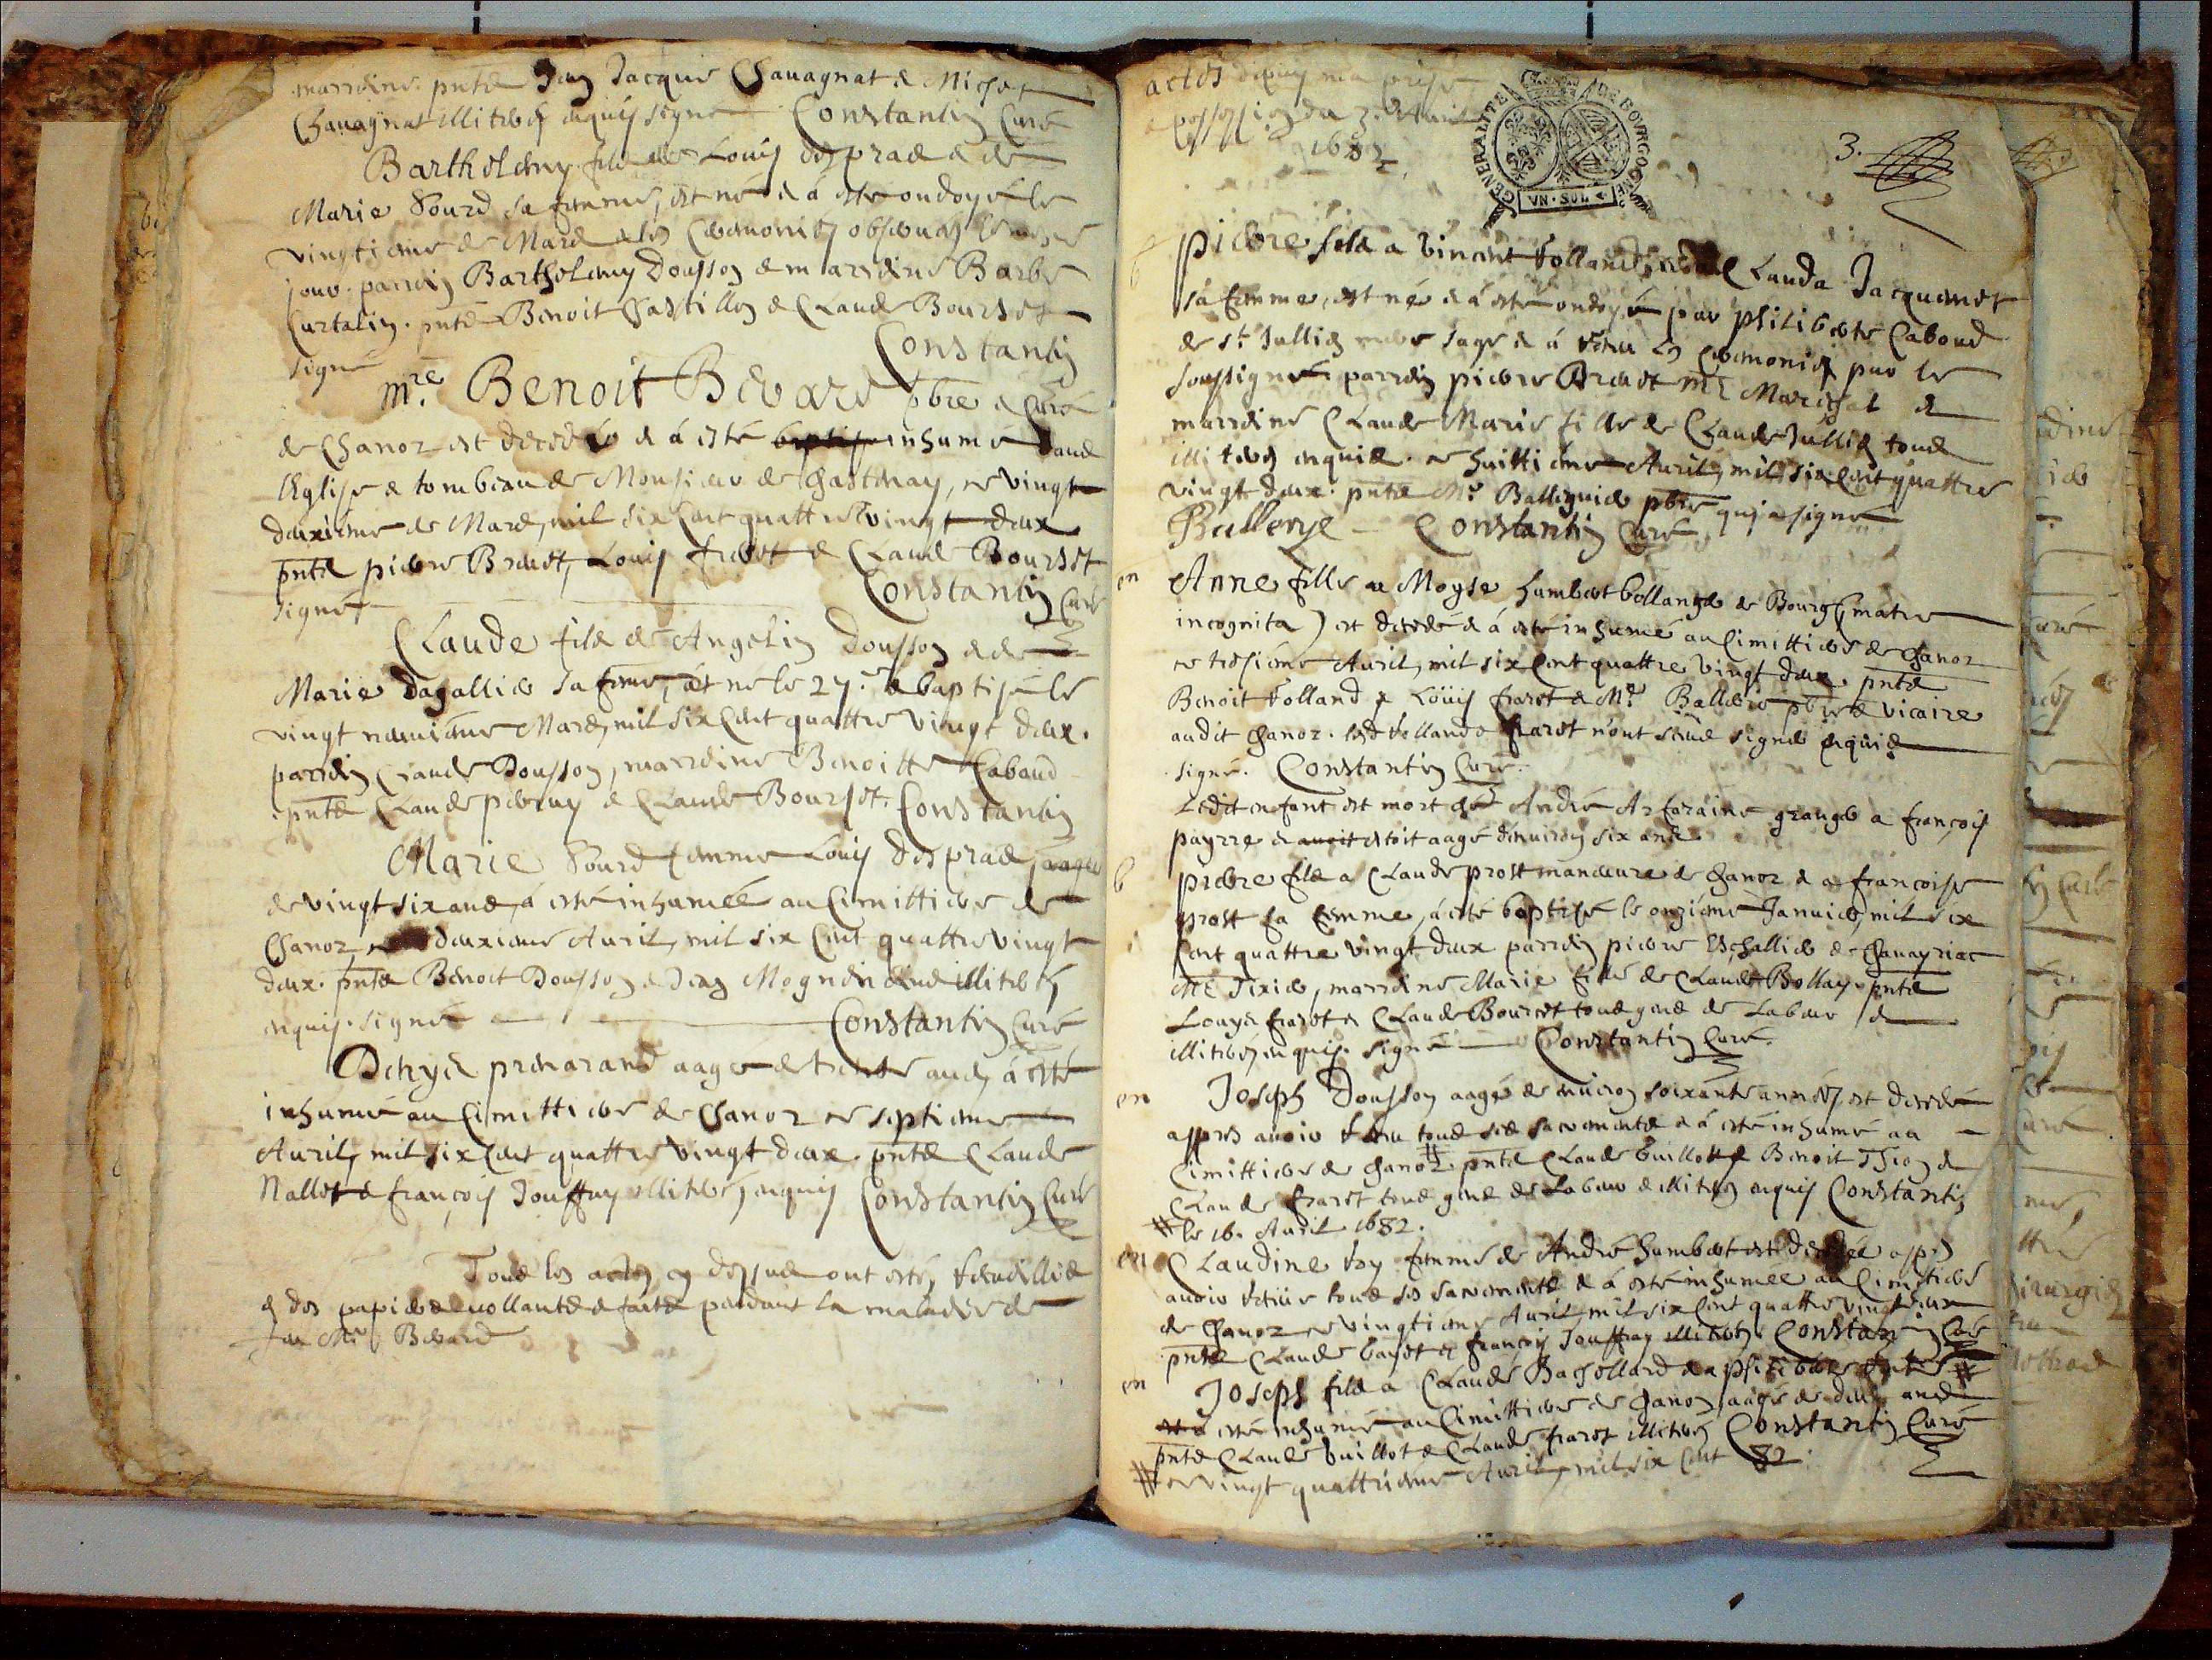 marrine. pntz Jean Jacques Chavagnat & Michel
Chavagnat illiterés enquis signé Constantin Curé
Barthelemy filz de Louis des pras & de
Marie Sourd sa femme, est né & á esté ondoyé le
vingtieme de Mars & les ceremonies observées le mesme
jour. parrein Barthelemy Dousson & marreine Barbe
Curtalin. pntz Benoit Chastillon & Claude Bourset
signé Constantin
Mre. Benoit Berard pbre & Curé
de Chanoz est decedé & á esté inhumé dans
l'Eglise & tombeau de Monsieur de Chastenay, ce vingt
deuxieme de Mars, mil six cent quattre vingt deux
pntz pierre Brevet, Louis freret & Claude Bourset
signé Constantin Curé
Claude filz de Angelin Dousson & de
Marie Dagallier sa feme, est né le 27e. & baptisé le
vingt neuvieme Mars, mil six cent quattre vingt deux.
parrein Claude Dousson, marreine Benoitte Caboud
pntz Claude perruy & Claude Bourset. Constantin
Marie Sourd femme Louis des pras, aagée
de vingt six ans, á esté inhumée au Cimittiere de
Chanoz, ce deuxieme Avril, mil six cent quattre vingt
deux. pntz Benoit Dousson & Jean Mognein illiterés
enquis. signé Constantin Curé
Denys aagé de trente ans, á esté
inhumé au Cimittiere de Chanoz ce septieme
Avril, mil six cent quattre vingt deux. pntz Claude
Nallet & françois Jouffray illiterés, enquis Constantin Curé
Tous les actes cy dessus ont estés receuillis
& des papiers vollants & faits pendant la maladie de
feu Mre. Berard
actes depuis ma prise
& possession du 3. Avril
1682.
GENERALITE DE BOVRGOGNE
VN. SOL
3.
pierre filz a Vincent folland & a Clauda Jacquemet
sa femme, est né & á esté ondoyé par philiberte Caboud
de St. Jullien mere sage & á receu les ceremonies par le
soussigné. parrein pierre Brevet mre Marechal &
marreine Claude Marie fille de Claude Jullien tous
illiterés enquis. ce huittieme Avril, mil six cent quattre
vingt deux. pntz Mre Balleguier pbre qui a signé
Constantin Curé
en Anne fille a Moyse humbert bollanger de Bourg (matre
incognita) est decedé & á esté inhumé au Cimittiere de Chanoz
ce troisieme Avril, mil six cent quattre vingt deux. pntz
Benoit folland & Louis freret & Mre. pbre & vicaire
audit Chanoz. lesd folland & freret n'ont sceus signer enquis
signé. Constantin Curé.
Ledit enfant est mort chez André granger a françois
payrre & avoit estoit aagé d'environ six ans
b pierre filz a Claude prost manoeuvre de Chanoz & a francoise
prost sa femme, á esté baptisé le onzieme Janvier, mil six
cent quattre vingt deux parrein pierre Eschallier de Chaveyriac
Me Tixier, marreine Marie fille de Claude Bollay. pntz
Louys freret & Claude Bourset tous gens de Labeur &
illiterés enquis. signé Constantin Curé.
en Joseph Dousson aagé de environ soixante années est decedé
appres avoir receu tous ses sacements & á esté inhumé au
Cimittiere de Chanoz # pntz Claude buillot & Benoit Thion &
Claude freret tous gens de Labeur & illiterés enquis Constantin
# le 16. Avril 1682.
en Claudine foy femme de André humbert est decedée appres
avoir receüe tous ses sacrements & á esté inhumée au Cimittiere
de Chanoz ce vingtieme Avril, mil six cent quattre vingt deux
pntz Claude bayet & françois Jouffray illiterés. Constantin Curé
en Joseph filz a Claude Bachollard & a philiberte #
esté inhumé au Cimittiere de Chanoz, aagé de deux ans
pntz Claude buillot & Claude freret illiterés Constantin Curé
# ce vingt quattrieme Avril, mil six cent 82.